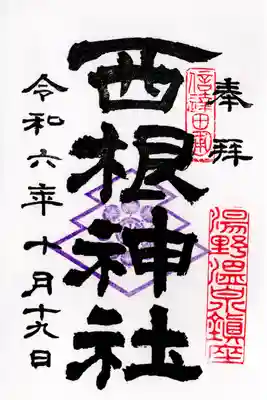 奉拝
信達田中甫
湯野温泉鎮座
西根神社
令和六年十月十九日